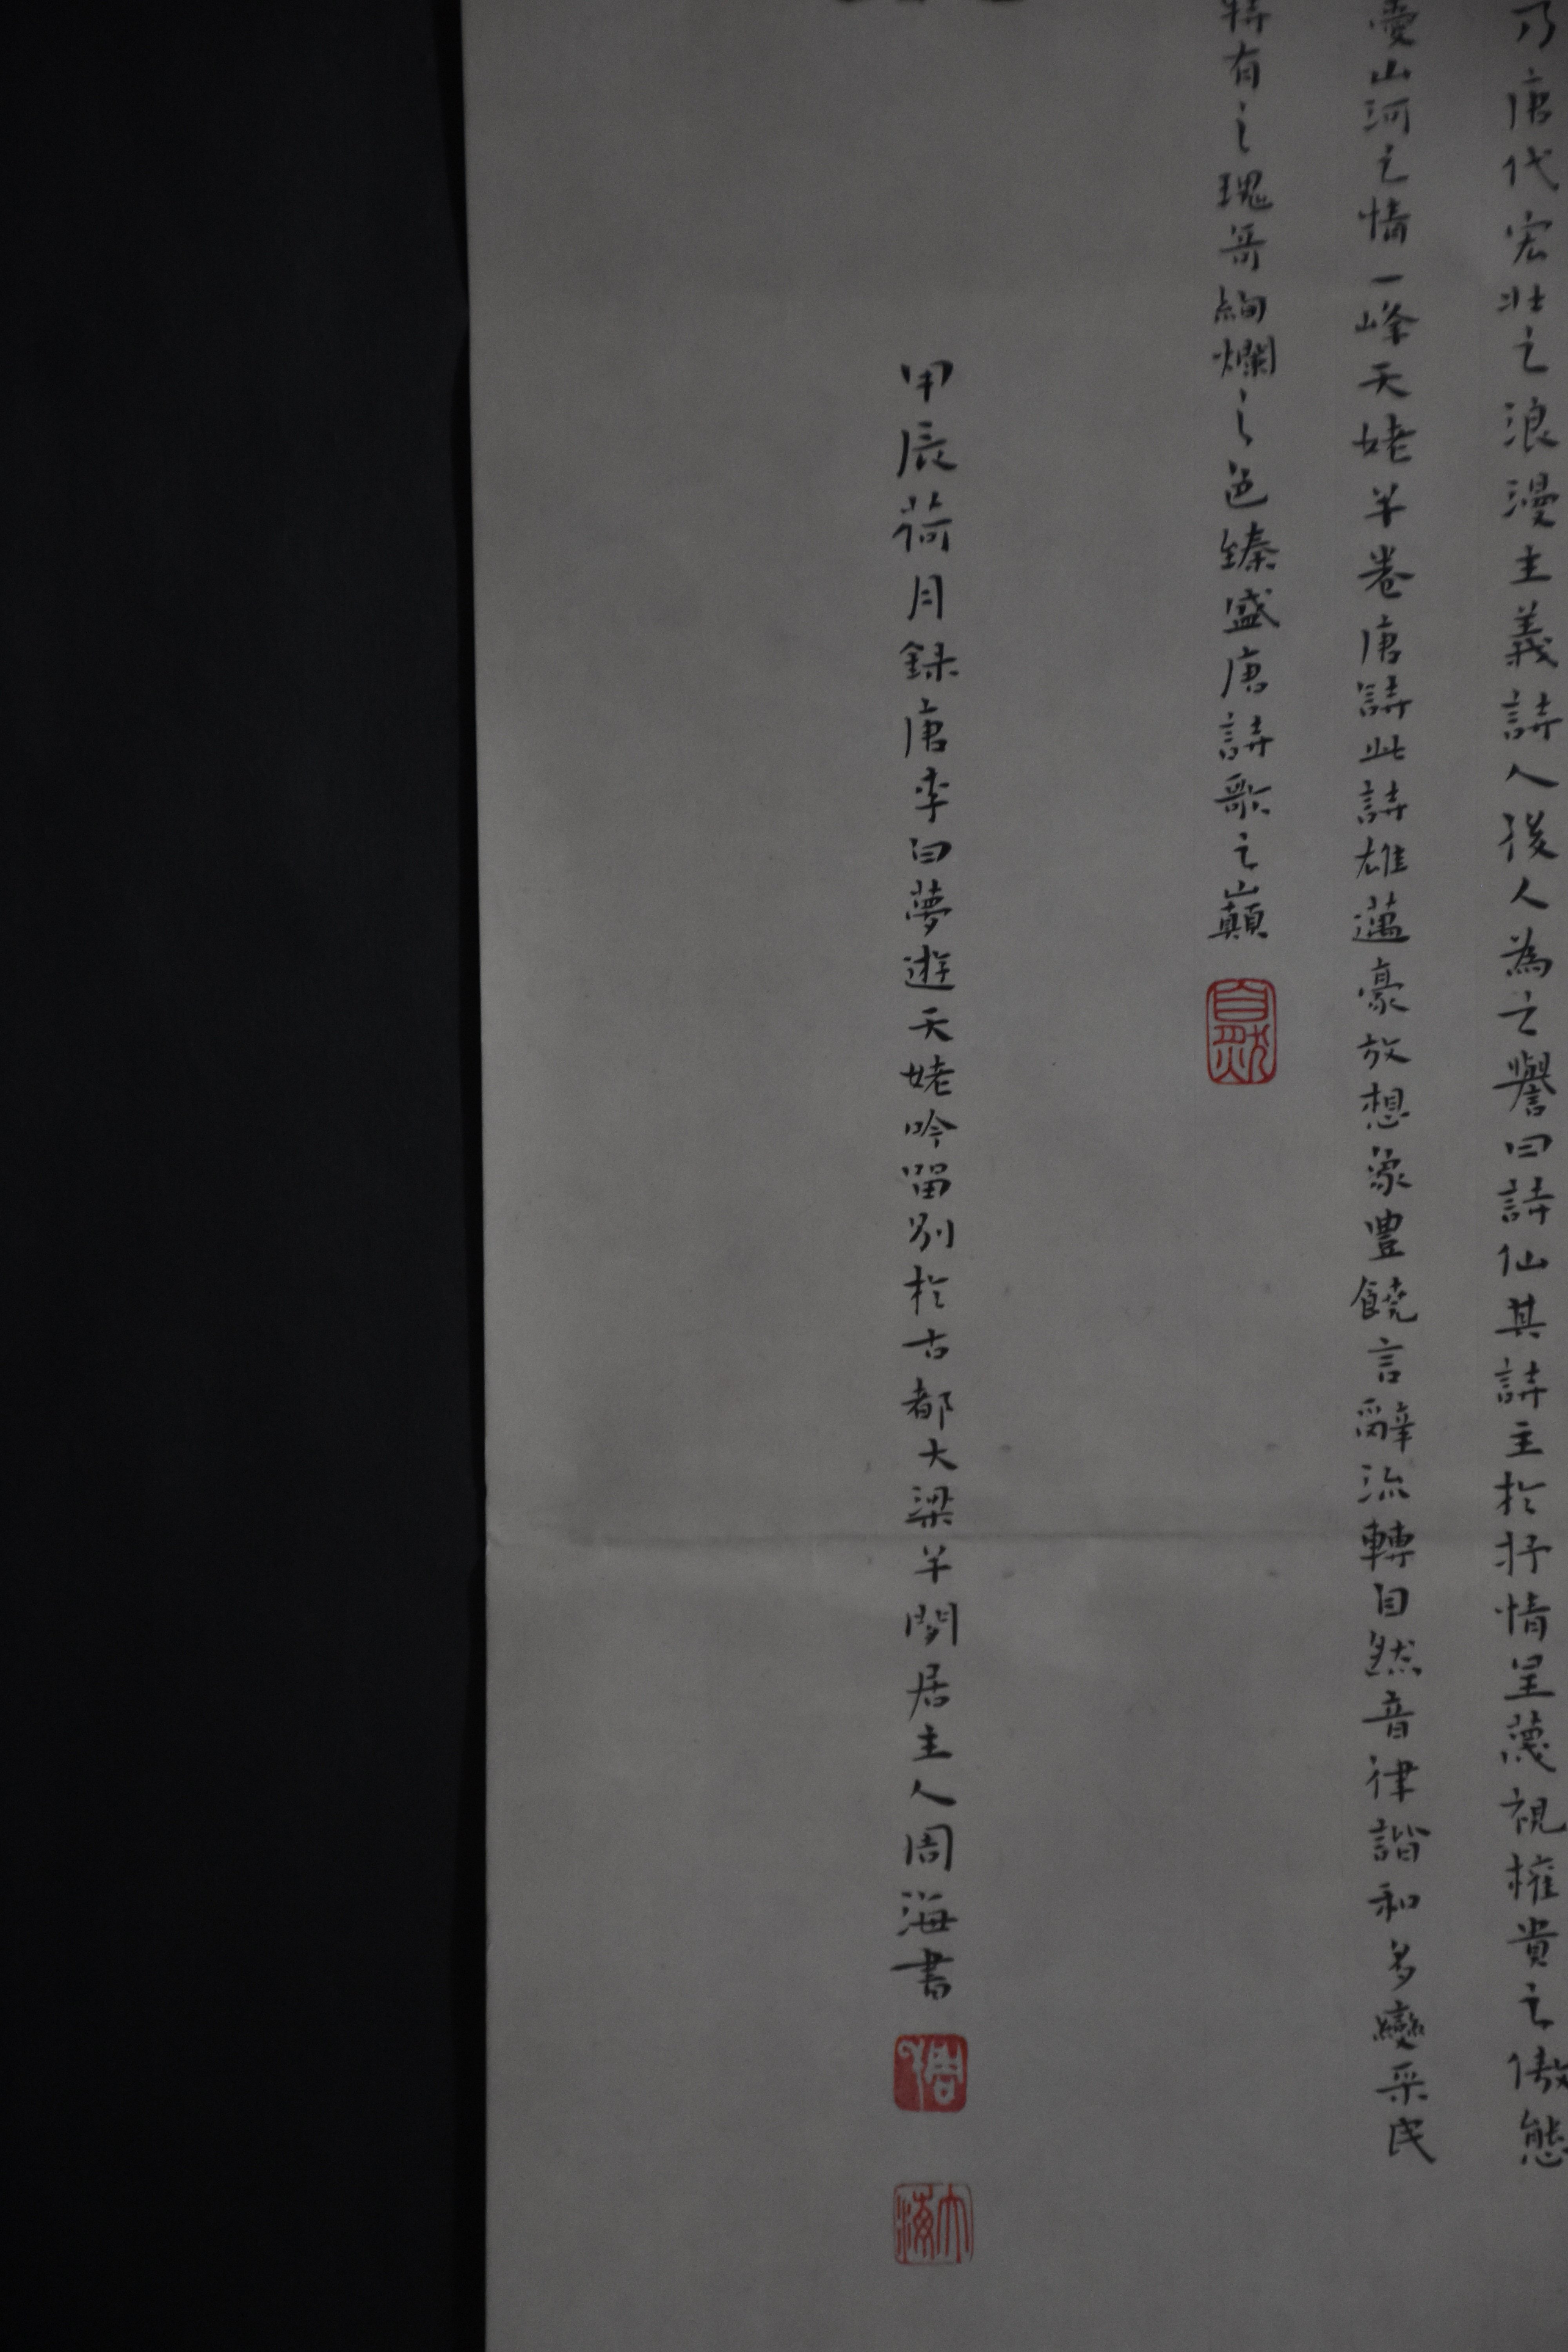 乃唐代宏壯之浪漫主義詩人後人為之譽曰詩仙其詩主於抒情呈蔑視權貴之傲態
憂山河之情一峰天姥半卷唐詩此詩雄邁豪放想象豐饒言辭流轉自然音律諧和多變采民
特有之瑰奇絢爛之色臻盛唐詩歌之巔
自然
甲辰荷月録唐李白夢遊天姥吟留別於古都大梁半閒居主人周海書